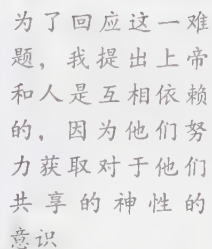 为了回应这一难
题，我提出上帝
和人是互相依赖
的，因为他们努
力获取对于他们
共享的神性的
意识